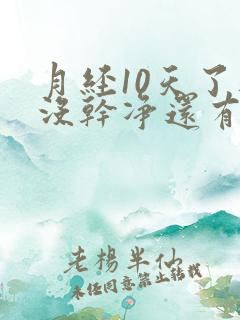 月经10天了
没幹净還有
老楊半仙
未经同意禁止转载